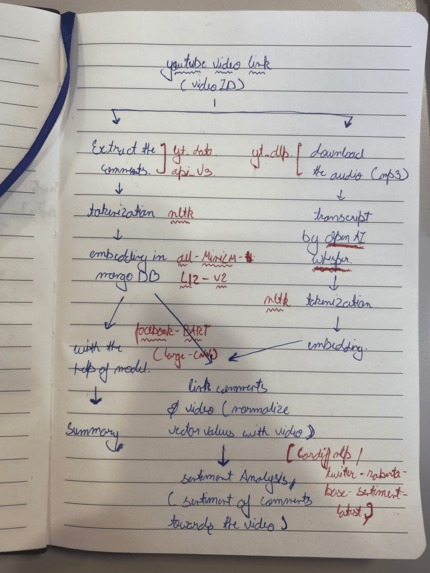 youtube video link
(video ID)
Extract the ] yt.data
comments. api v3
yt.dlp. [ download
the audio (mp3)
tokenization nltk
transcript
by open AI
whisper
embedding in all-MiniLM-
mongo DB L12-v2
nltk tokenization
facebook-BART
(large-cnn)
embedding.
with the
help of model.
Summary
link comments
& video (normalize
vector values with video)
sentiment Analysis,
(sentiment of comments
towards the video)
[Cardiffnlp/
twitter-roberta-
base-sentiment-
latest]